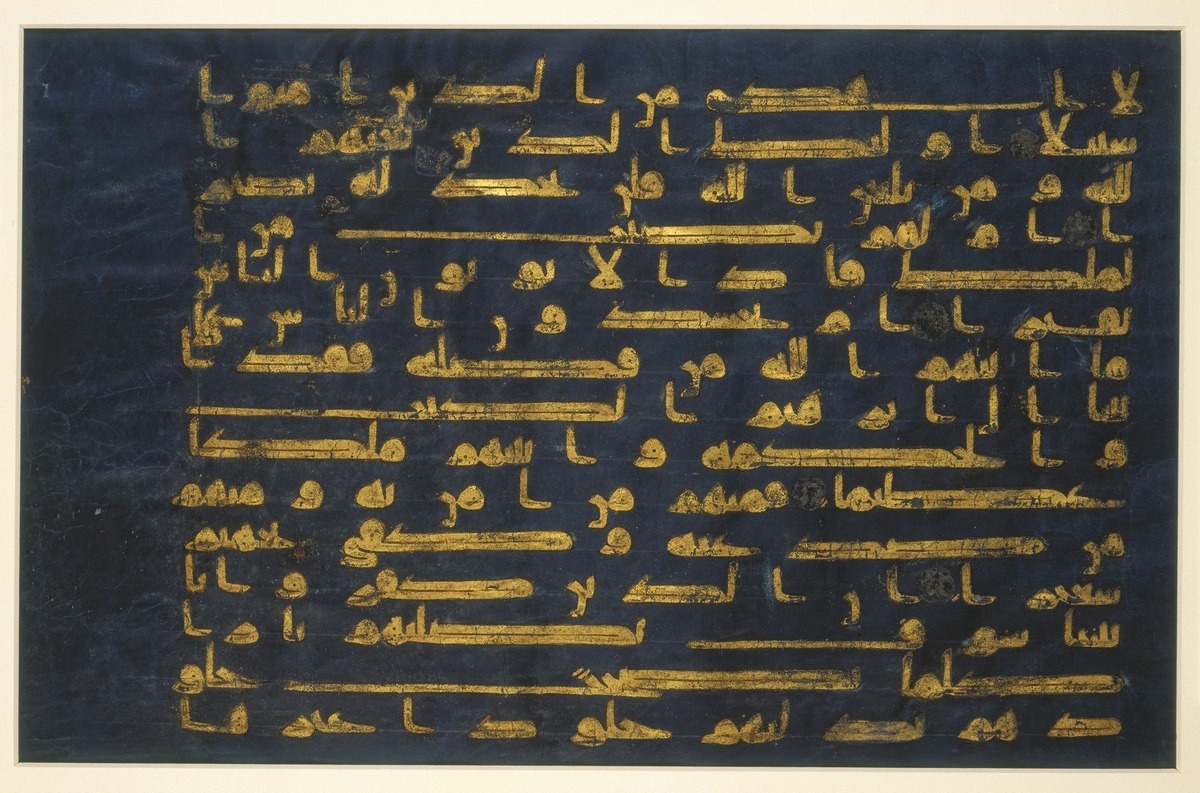 لا اهدى من الذين امنوا
سبيلا اولئك الذين لعنهم ا
لله ومن يلعن الله فلن تجد له نصير
ا ام لهم نصيب من ا
لملك فاذا لا يوتون الناس
نقيرا ام يحسدون الناس على
ما اتيهم الله من فضله فقد ا
تينا ال ابرهيم الكتب
و الحكمة و اتينهم ملكا
عظيما فمنهم من امن به و منهم
من صد عنه و كفى بجهنم
سعيرا ان الذين كفروا بايـ
تنا سوف نصليهم نارا
كلما نضجت جلو
دهم بدلنهم جلودا غيرها